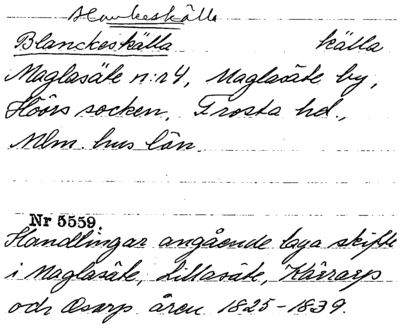 Blanckeskälla källa
Maglasäte n:r 4, Maglasäte by,
Höörs socken, Frosta hd.,
Mlm. hus län.
Nr 5559.
Handlingar angående laga skifte
i Maglasäte, Lillasäte, Kärrarp
och Osarp åren 1825-1839.